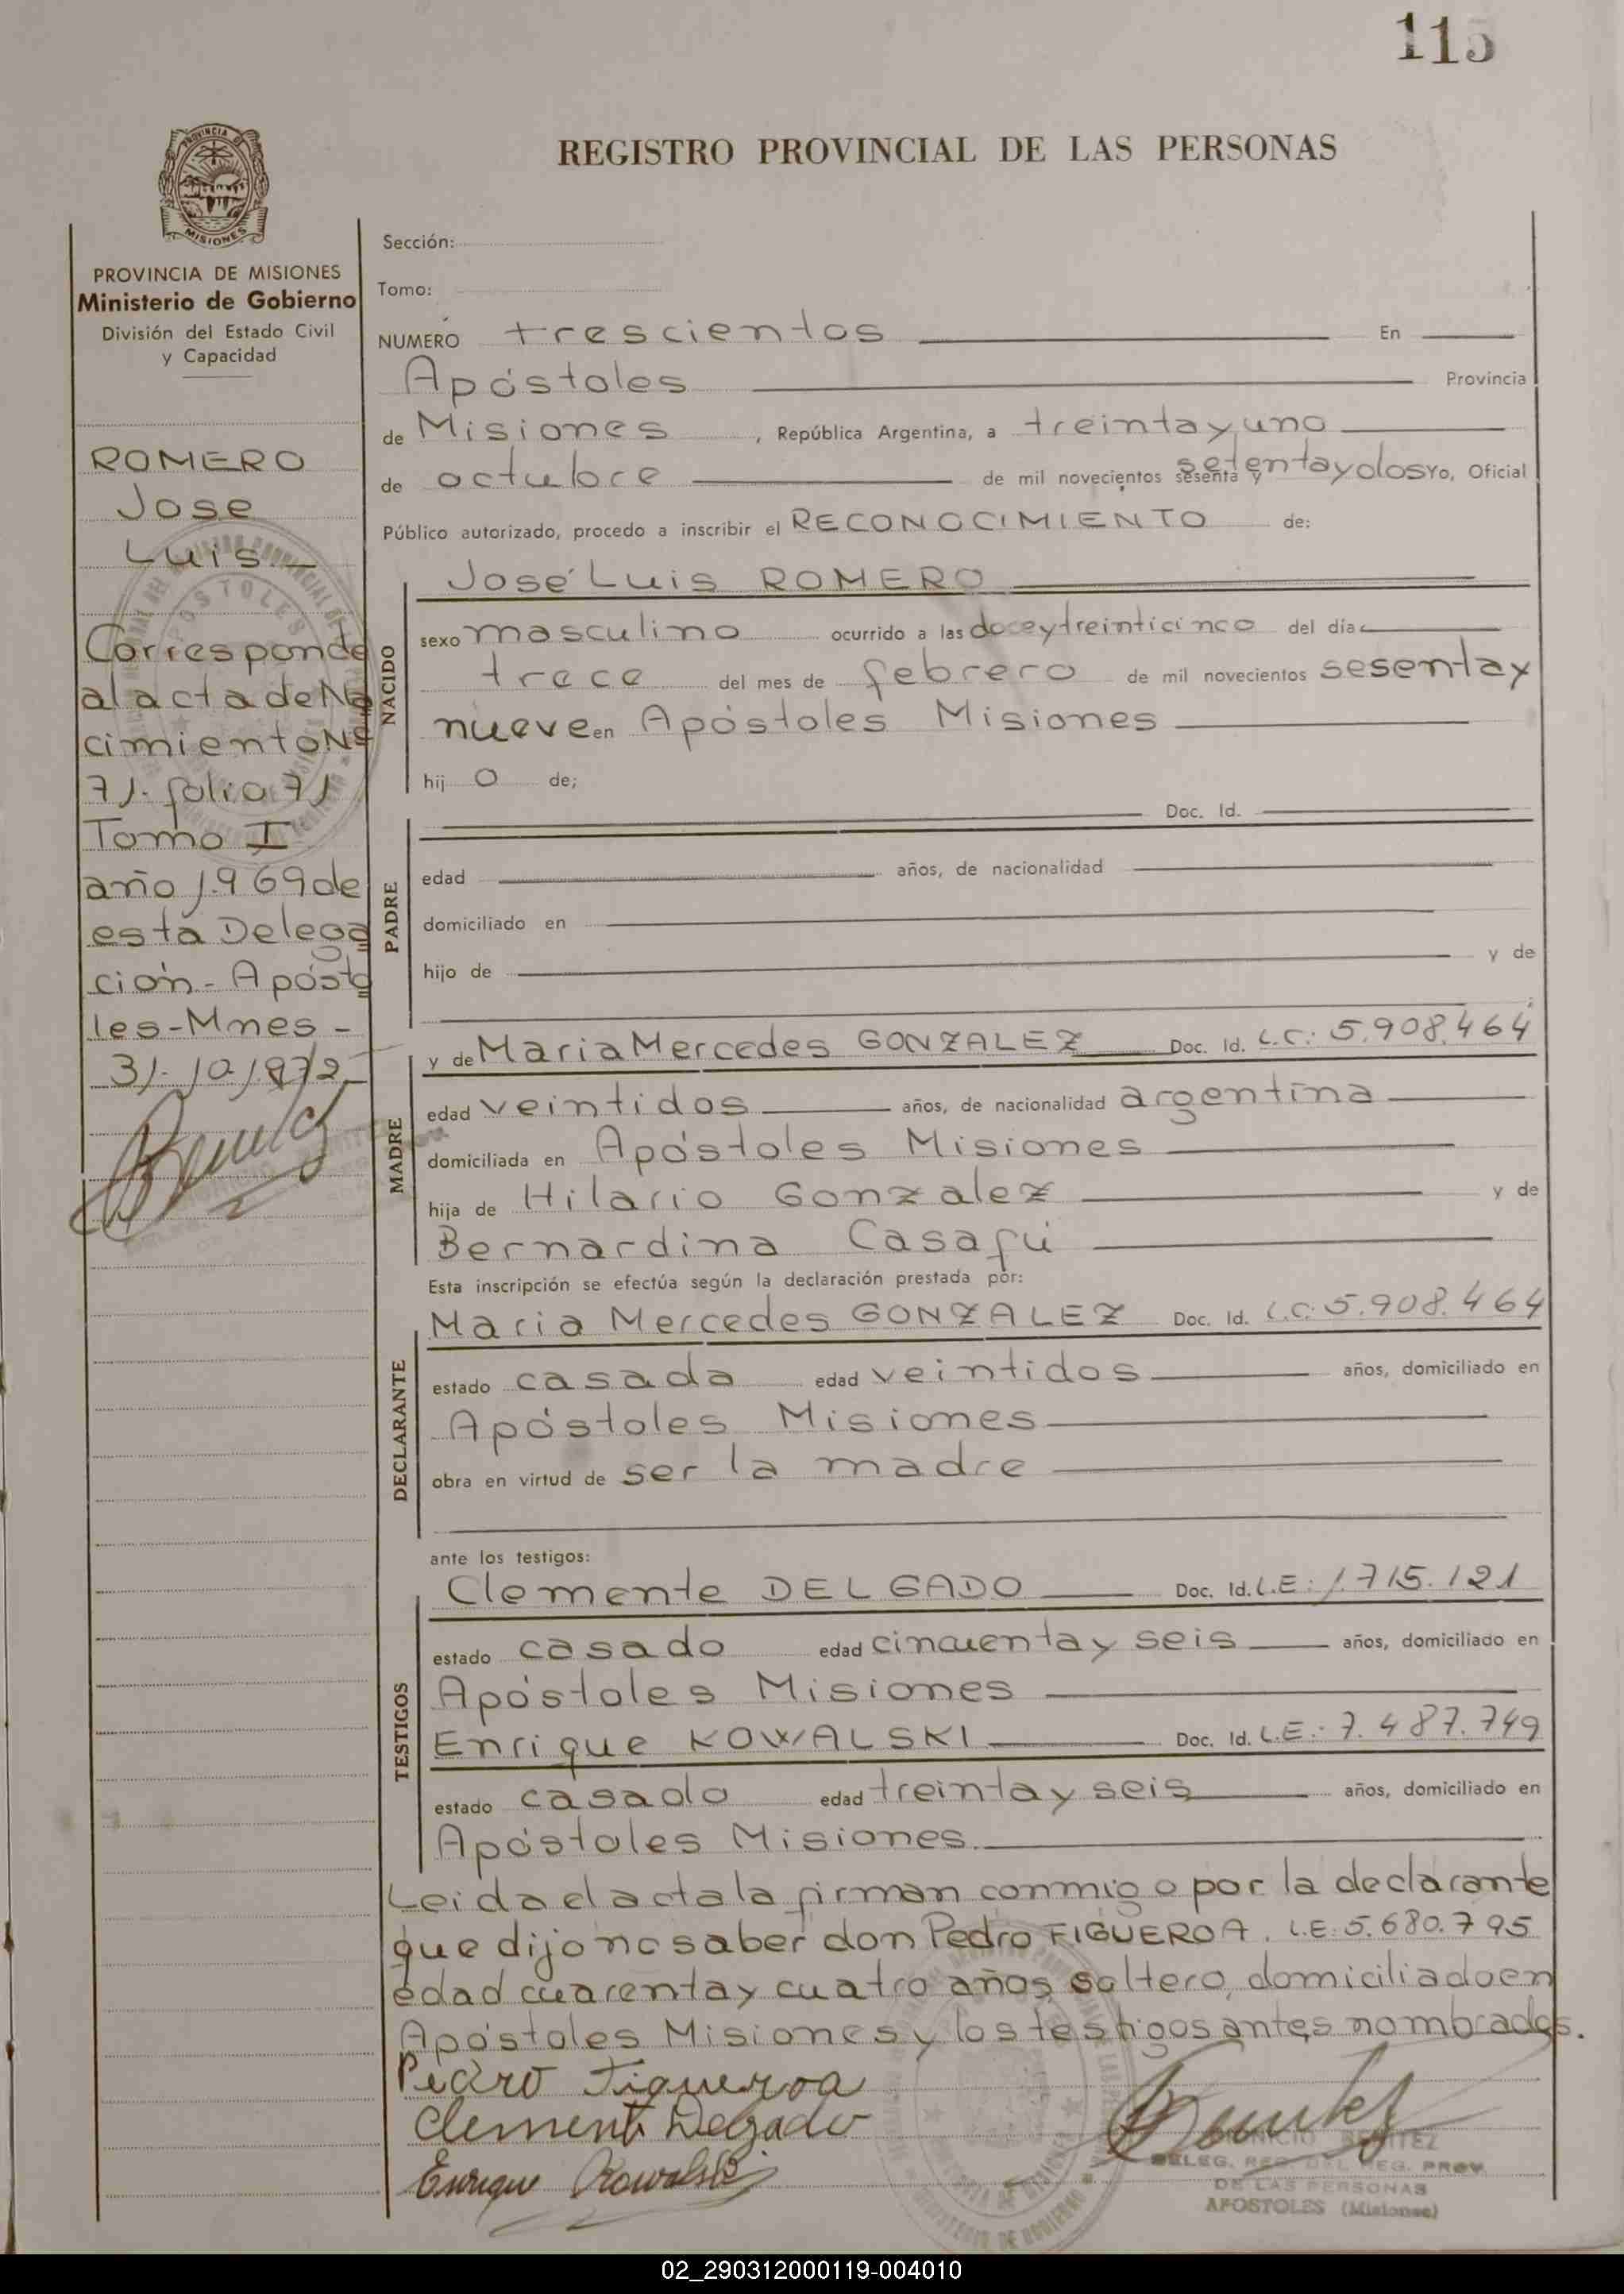 115
REGISTRO PROVINCIAL DE LAS PERSONAS
PROVINCIA DE
MISIONES
PROVINCIA DE MISIONES
Ministerio de Gobierno
División del Estado Civil
y Capacidad
ROMERO
Jose
Luis.
Corresponde
al acta de Na
cimiento Nº
71. folio 71
Tomo I
año 1.969 de
esta Delega
ción - Apósto
les - Mnes -
31. 10. 1972
Sección:
Tomo:
NUMERO trescientos En
Apóstoles Provincia
de Misiones , República Argentina, a treinta y uno
de octubre de mil novecientos sesenta y setenta y dos Yo, Oficial
Público autorizado, procedo a inscribir el RECONOCIMIENTO de:
NACIDO
José Luis ROMERO
sexo masculino ocurrido a las doce y treinticinco del día
trece del mes de febrero de mil novecientos sesenta y
nueve en Apóstoles Misiones
hij o de;
PADRE
Doc. Id.
edad años, de nacionalidad
domiciliado en
hijo de y de
MADRE
y de Maria Mercedes GONZALEZ Doc. Id. L.C: 5.908.464
edad veintidos años, de nacionalidad argentina
domiciliada en Apóstoles Misiones
hija de Hilario Gonzalez y de
Bernardina Casafú
Esta inscripción se efectúa según la declaración prestada por:
DECLARANTE
Maria Mercedes GONZALEZ Doc. Id. L.C: 5.908.464
estado casada edad veintidos años, domiciliado en
Apóstoles Misiones
obra en virtud de ser la madre
ante los testigos:
TESTIGOS
Clemente DELGADO Doc. Id. L.E: 1.715.121
estado casado edad cincuenta y seis años, domiciliado en
Apóstoles Misiones
Enrique KOWALSKI Doc. Id. L.E.: 7.487.749
estado casado edad treinta y seis años, domiciliado en
Apóstoles Misiones.
Leida el acta la firman conmigo por la declarante
que dijo no saber don Pedro FIGUEROA. L.E: 5.680.795
edad cuarenta y cuatro años soltero, domiciliado en
Apóstoles Misiones y los testigos antes nombrados.
Pedro Figueroa
Clemente Delgado
Enrique Kowalski
BENITEZ
DELEG. REG. DEL REG. PROV.
DE LAS PERSONAS
APOSTOLES (Misiones)
02_290312000119-004010